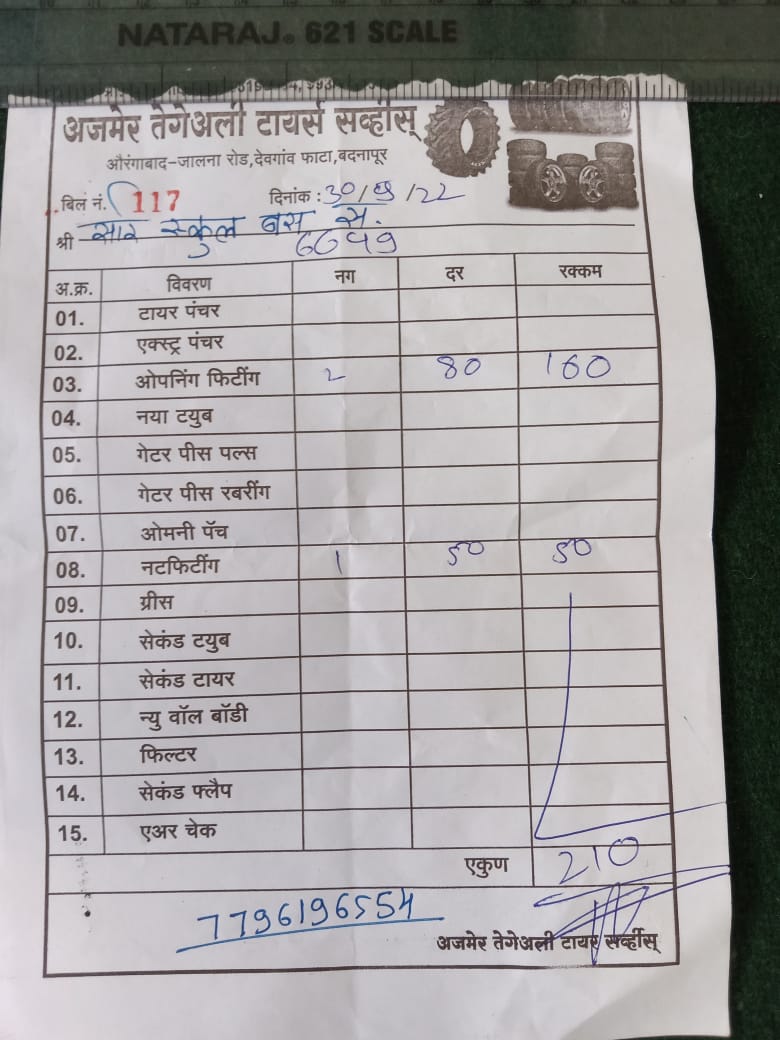 NATARAJ® 621 SCALE
अजमेर तेगेअली टायर्स सर्व्हीस्
औरंगाबाद-जालना रोड,देवगांव फाटा,बदनापूर
बिल नं. 117 दिनांक : 30/ /22
श्री सार स्कुल बस से.
अ.क्र. विवरण नग दर रक्कम
01. टायर पंचर
02. एक्स्ट्र पंचर
03. ओपनिंग फिटींग 2 80 160
04. नया टयुब
05. गेटर पीस पल्स
06. गेटर पीस रबरींग
07. ओमनी पॅच
08. नटफिटींग 1 50 50
09. ग्रीस
10. सेकंड टयुब
11. सेकंड टायर
12. न्यु वॉल बॉडी
13. फिल्टर
14. सेकंड फ्लैप
15. एअर चेक
एकुण 210
7796196554
अजमेर तेगेअली टायर सर्व्हीस्